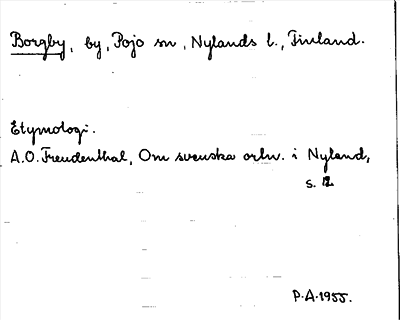 Borgby, by, Pojo sn, Nylands l., Finland.
Etymologi.
A.O. Freudenthal, Om svenska ortn. i Nyland,
s. 12
P.A. 1955.